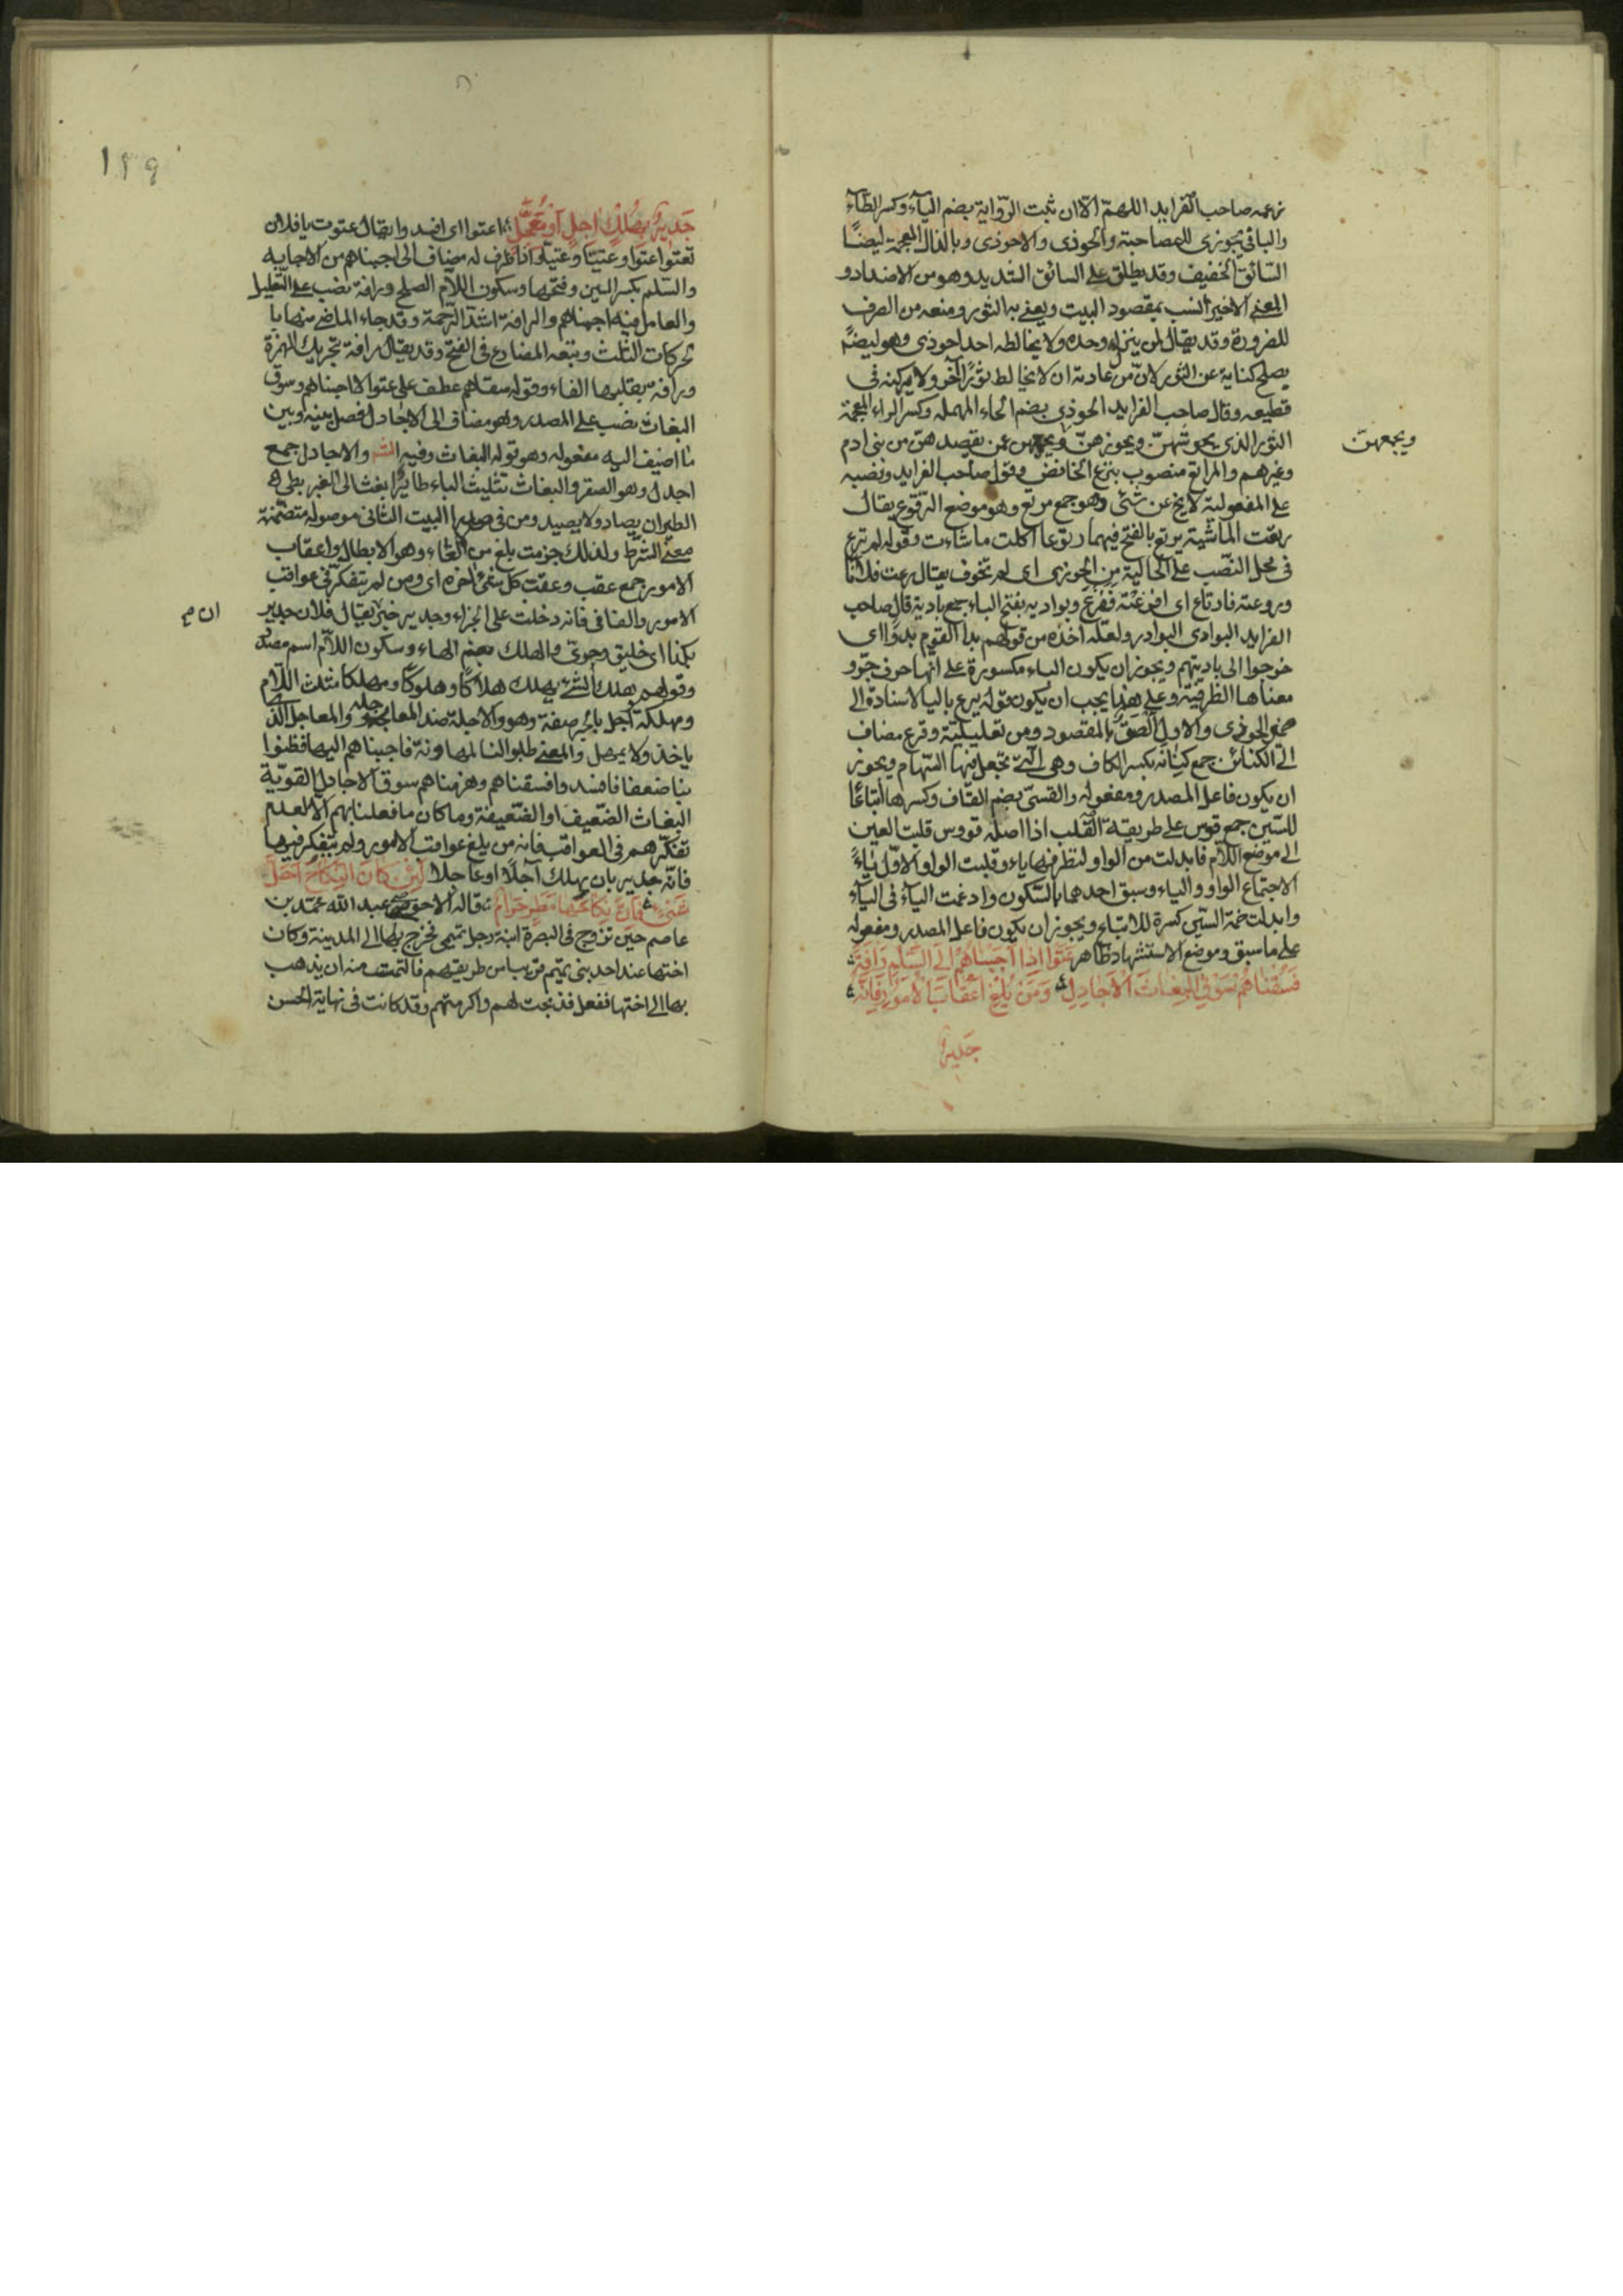 زعمه صاحب الفرايد اللهمّ الّا ان ثبت الرّواية بضم اليآء وكسر الطّآء
والباقي بحوزى للمصاحبة والحوذى والاحوذى وبالذال المعجمة ايضًا
السّائق الخفيف وقد يطلق على السائق الشديد وهو من الاضداد و
المعنى الاخير انسب بمقصود البيت ويعنى به الثور ومنعه من الصرف
للضرورة وقد يقال لمن ينزل وحده ولا يخالطه احد احوذى وهو ايضًا
يصلح كناية عن الثور لانّ من عادته ان لا يخالط ثورًا آخر ولا يركنه فى
قطيعه وقال صاحب الفرايد الحوذى بضم الحاء المهمله وكسر الزاء المعجمة
الثور الذى يحوشهنّ ويحوزهنّ ويحميهن عمن يقصدهنّ من بنى ادم
ويجمعهنّ
وغيرهم والمراتع منصوب بنزع الخافض وقول صاحب الفرايد ونصبه
على المفعولية لا يخ عن شئ وهو جمع مرتع وهو موضع الرتوع يقال
رتعت الماشية يرتع بالفتح فيهما رتوعا اكلت ماشاءت وقوله لم ترع
فى محل النّصب على الحالية من الحوزى اى لم تخوف يقال رعت فلانًا
وروعته فارتاع اى افزعته ففزع وبواديه بفتح الباء جمع بادية قال صاحب
الفرايد البوادى البوادر ولعلّه اخذه من قولهم بدا القوم بدوًا اى
خرجوا الى باديتهم ويجوز ان يكون الباء مكسورة على انّها حرف جرّ و
معناها الظرفيّة وعلى هذا يجب ان يكون قوله يرع باليا لاسنادة الى
الحوذى والاول الصق بالمقصود ومن تعليليّة وقرع مضاف
الى الكنائن جمع كنانه بكسر الكاف وهى الّتى تجعل فيها السّهام ويجوز
ان يكون فاعل المصدر ومفعوله والقسىّ بضم القاف وكسرها اتباعًا
للسّين جمع قوس على طريقة القلب اذا اصله قووس قلبت العين
الى موضع اللّام فابدلت من الواو لتطرفها ياء وقلبت الواو الاوّل ياءً
لاجتماع الواو والياء وسبق احدهما بالسّكون وادغمت اليآء فى اليآء
وابدلت ضمة السّين كسرة للاتباع ويجوز ان يكون فاعل المصدر ومفعوله
على ما سبق وموضع الاستشهاد ظاهر عَتَوْا اِذا اَجَبْناهُمْ اِلَى السِّلْمِ رَأفَةً
فَسُقْناهُمْ سَوْقَ البُغاثَ الْاَجادِلِ وَمَنْ يُلْغِ اَعْقابَ الْاُمُورِ فَاِنَّهُ
جَديرٌ
١٢٩
جَديرٌ بِهُلْكٍ آجِلٍ اَوْ مُعَجَّلِ اعتوا اى افسدوا يقال عتوت يا فلان
تعتوا عتوا وعتيّا وعتيّا واذا ظرف له مضاف الى اجبناهم من الاجابه
والسّلم بكسر السين وفتحها وسكون اللّام الصلح ورافة نصب على التّعليل
والعامل فيه اجبناهم والرافة اشدّ الرّحمة وقد جاء الماضى منها با
لحركات الثلث ويتبعه المضارع فى الفتح وقد يقال رافة بتحريك الهمزة
ورافة بقلبها الفاء وقوله سقناهم عطف على عتوا لا اجبناهم وسوق
البغاث نصب على المصدر وهو مضاف الى الاجادل فصل بينه وبين
ما اضيف اليه مفعوله وهو قوله البغاث وفيه الشّ والاجادل جمع
اجدل وهو الصقر والبغاث تثليث الباء طائرًا ابغث الى الغبر بطى ء
الطيران يصاد ولا يصيد ومن فى صدر البيت الثانى موصوله متضمّنة
معنى الشرط ولذلك جزمت يلغ من الغاء وهو الابطال واعقاب
الامور جمع عقب وعقب كل شئ اخره اى ومن لم يتفكّر فى عواقب
الامور والفا فى فانه دخلت على الجزاء وجدير خبر يقال فلان جدير
ان م
بكذا اى خليق وحرىّ والهلك بضم الهاء وسكون اللّام اسم مصدر
وقولهم هلك الشّئ يهلك هلاكًا وهلوكًا ومهلكا مثلث اللّام
ومهلكة آجل بالجر صفة وهو والاجلة ضد العاجلة والمعاجل الّذى
ياخذ ولا يمهل والمعنى طلبوا لنا لمهاونة فاجبناهم اليها فظنّوا
بنا ضعفا فافسدوا فسقناهم وهزمناهم سوق الاجادل القويّة
البغاث الضّعيف او الضّعيفة وما كان ما فعلنا بهم الّا لعدم
تفكّرهم فى العواقب فانه من يلغ عواقب الامور ولم يتفكر فيها
فانّه جدير بان يهلك آجلًا او عاجلا لَئِنْ كانَ النِّكاحُ اَحَلَّ
شَيْئٍ فَاِنَّ نِكاحَها مَطَرٍ حَرامُ قاله الاحوص عبد الله محمّد بن
عاصم حين تزوج فى البصرة ابنة رجل تميمى فخرج بها الى المدينة وكان
اختها عند احد بنى تميم قريبا من طريقهم فالتمست منه ان يذهب
بها الى اختها ففعل فذبحت لهم واكرمتهم وقد كانت فى نهاية الحسن